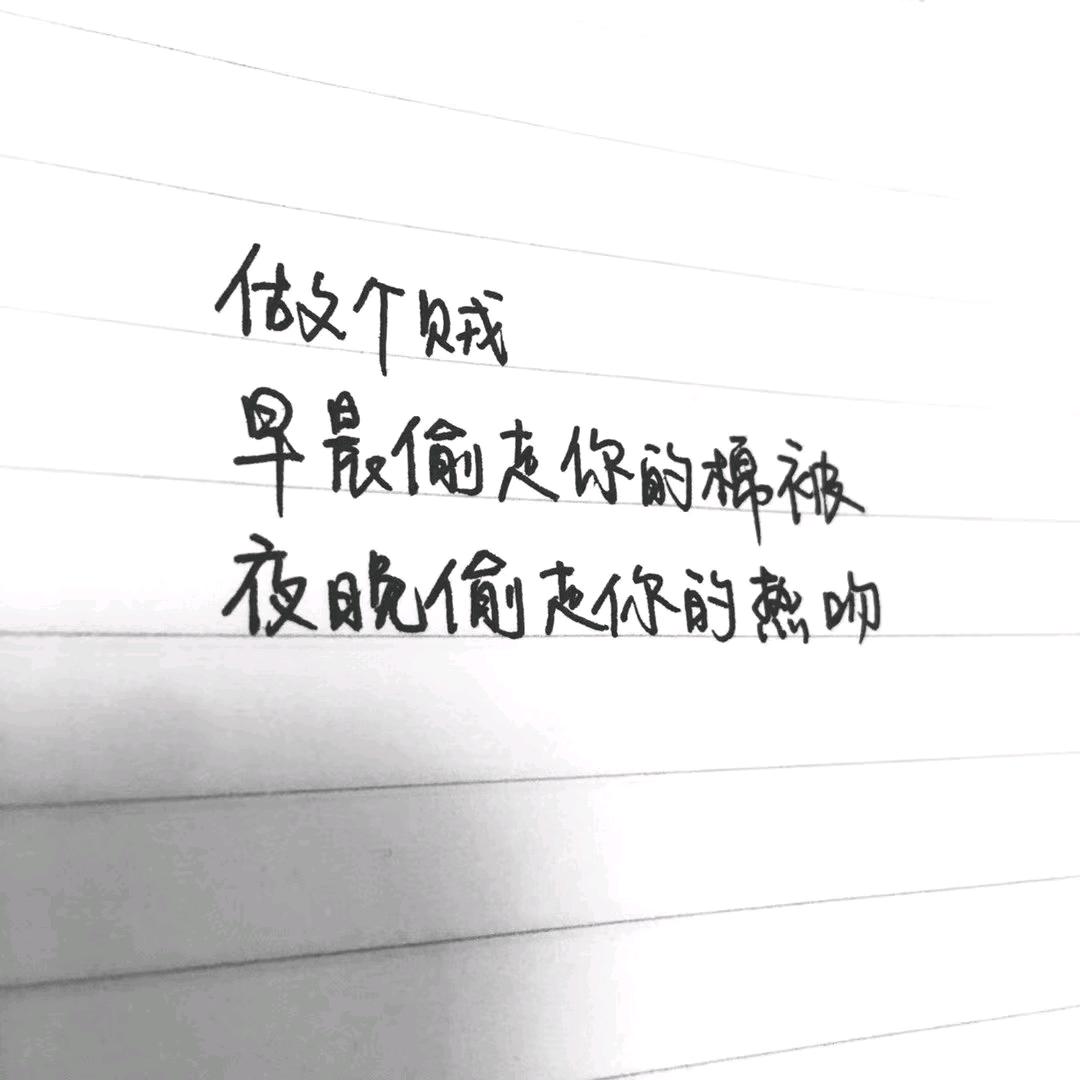 做个贼
早晨偷走你的棉被
夜晚偷走你的热吻